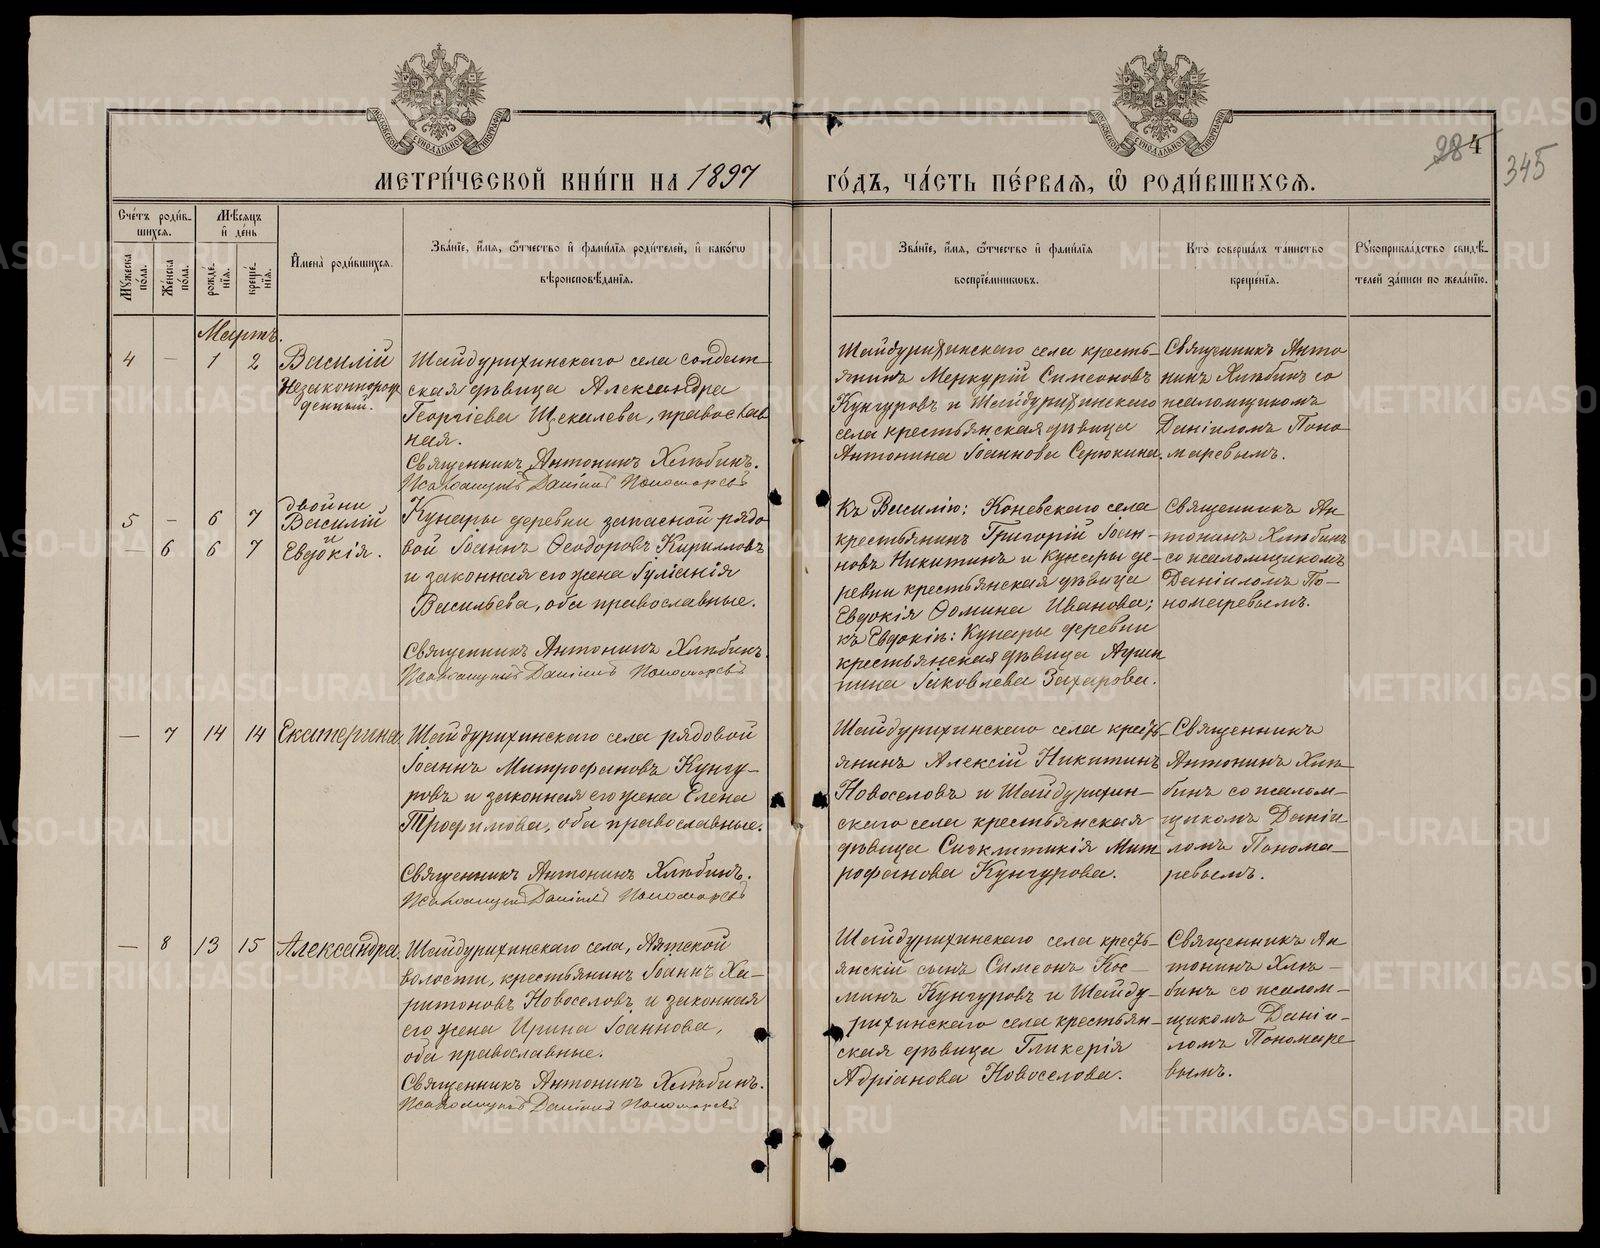 МОСКОВСКОЙ СѴНОДАЛЬНОЙ ТИПОГРАФІИ
МОСКОВСКОЙ СѴНОДАЛЬНОЙ ТИПОГРАФІИ
284
345
МЕТРИ́ЧЕСКОЙ КНИ́ГИ НА 1897
ГО́ДЪ, ЧА́СТЬ ПЕ́РВАЯ, Ѽ РОДИ́ВШИХСЯ.
Сче́тъ роди́в-
шихся.
Мѣ́сяцъ
и҆ де́нь
Мꙋ́жеска
пола.
Же́нска
пола.
рожде́-
нїя.
креще́-
нїя.
И҆мена̀ роди́вшихся.
Зва́нїе, и҆́мя, ѻ҆́тчество и҆ фами́лїя роди́телей, и҆ како́гѡ
вѣроисповѣ́данїя.
Зва́нїе, и҆́мя, ѻ҆́тчество и҆ фами́лїя
воспрїе́мниковъ.
Кто̀ соверша́лъ та́инство
креще́нїя.
Рꙋкоприкла́дство свидѣ́-
телей за́писи по жела́нїю.
Мартъ.
4 — 1 2 Василій
Незаконнорож-
денный.
Шайдурихинскаго села солдат-
ская дѣвица Александра
Георгіева Щекалева, православ
ная.
Священникъ Антонинъ Хлѣбинъ.
Псаломщикъ Даніилъ Пономаревъ
Шайдурихинскаго села кресть-
янинъ Меркурій Симеоновъ
Кунгуровъ и Шайдурихинскаго
села крестьянская дѣвица
Антонина Іоаннова Серюкина.
Священникъ Анто
нинъ Хлѣбинъ со
псаломщикомъ
Даніиломъ Поно-
маревымъ.
двойни
5 — 6 7 Василій
и
— 6 6 7 Евдокія.
Кунары деревни запасной рядо-
вой Іоаннъ Ѳеодоровъ Кирилловъ
и законная его жена Іуліанія
Васильева, оба православные.
Священникъ Антонинъ Хлѣбинъ.
Псаломщикъ Даніилъ Пономаревъ
Къ Василію: Коневскаго села
крестьянинъ Григорій Іоан-
новъ Никитинъ и Кунары де-
ревни крестьянская дѣвица
Евдокія Ѳомина Иванова;
къ Евдокіи: Кунары деревни
крестьянская дѣвица
Іаковлева Захарова.
Священникъ Ан
тонинъ Хлѣбинъ
со псаломщикомъ
Даніиломъ По-
номаревымъ.
— 7 14 14 Екатерина
Шайдурихинскаго села рядовой
Іоаннъ Митрофановъ Кунгу-
ровъ и законная его жена Елена
Трофимова, оба православные.
Священникъ Антонинъ Хлѣбинъ.
Псаломщикъ Даніилъ Пономаревъ
Шайдурихинскаго села кресть-
янинъ Алексій Никитинъ
Новоселовъ и Шайдурихин-
скаго села крестьянская
дѣвица Синклитикія Мит
рофанова Кунгурова.
Священникъ
Антонинъ Хлѣ-
бинъ со псалом-
щикомъ Даніи
ломъ Понома-
ревымъ.
— 8 13 15 Александра
Шайдурихинскаго села, Аятской
волости, крестьянинъ Іоаннъ Ха-
ритоновъ Новоселовъ и законная
его жена Ирина Іоаннова,
оба православные.
Священникъ Антонинъ Хлѣбинъ.
Псаломщикъ Даніилъ Пономаревъ
Шайдурихинскаго села кресть-
янскій сынъ Симеонъ Кос-
минъ Кунгуровъ и Шайду-
рихинскаго села крестьян-
ская дѣвица Гликерія
Адріанова Новоселова.
Священникъ Ан
тонинъ Хлѣ-
бинъ со псалом-
щикомъ Даніи-
ломъ Пономаре
вымъ.
METRIKI.GASO-URAL.RU